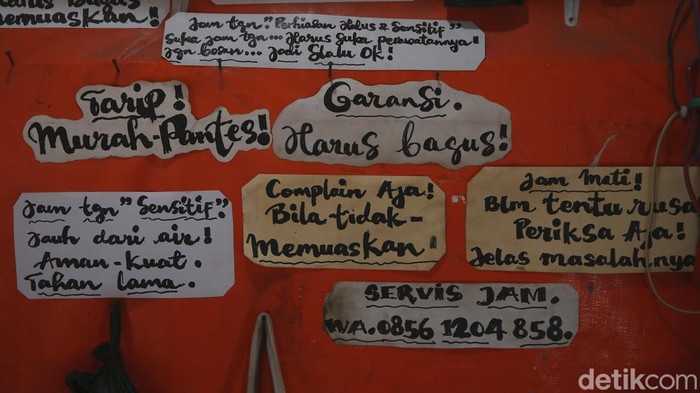 Bagus
memuaskan!
Jam tgn." Perhiasan Halus & Sensitif"
Suka jam tgn... Harus Suka perawatannya"
Jgn bosan... Jadi Slalu Ok!
Tarip!
Murah-Pantes!
Garansi.
Harus bagus!
Jam tgn" Sensitif"
Jauh dari air!
Aman-Kuat.
Tahan lama.
Complain Aja!
Bila tidak-
Memuaskan!
Jam Mati!
Blm tentu rusa
Periksa Aja!
Jelas masalahnya
SERVIS JAM.
WA. 0856 1204 858.
detikcom